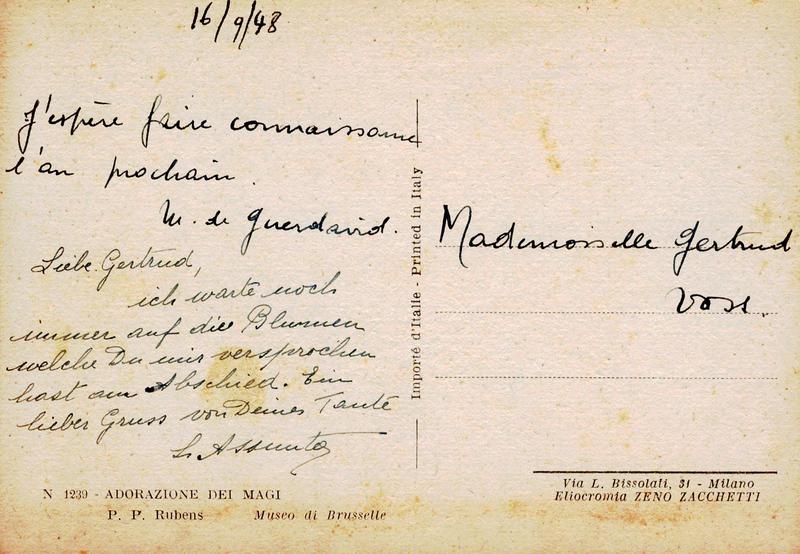 16/9/48
J'espère faire connaissance
l'an prochain.
M. de Guerdavid.
Liebe Gertrud,
ich warte noch
immer auf die Blumen
welche Du mir versprochen
hast am Abschied. Ein
lieber Gruss von Deines Tante
Assunta
Importé d'Italie - Printed in Italy
Mademoiselle Gertrud
N 1239 - ADORAZIONE DEI MAGI
P. P. Rubens Museo di Brusselle
Via L. Bissolati, 31 - Milano
Eliocromia ZENO ZACCHETTI